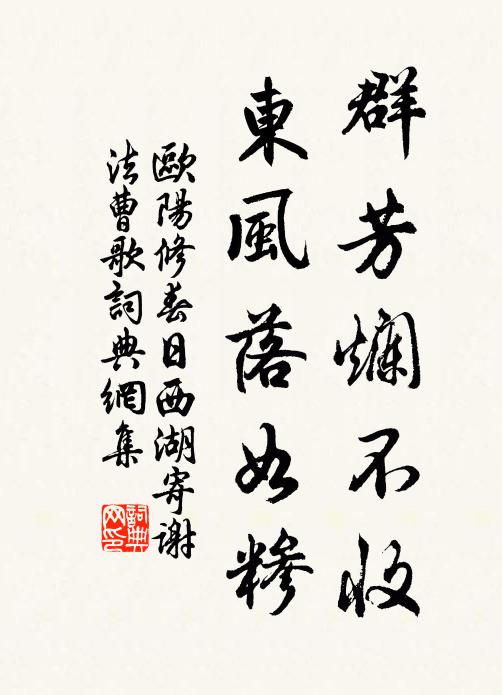 群芳爛不收
東風落如糝
歐陽修春日西湖寄謝
法曹歌詞典網集
詞典
网印